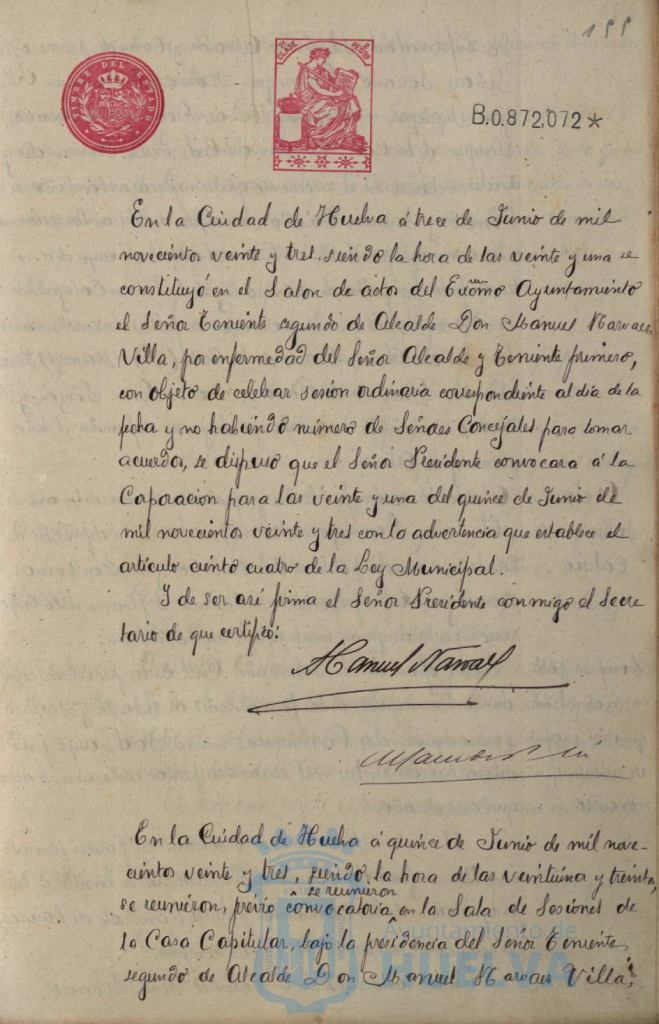 199
TIMBRE DEL ESTADO
CLASE
PESETAS
B.0.872,072*
En la Ciudad de Huelva á trece de Junio de mil
novecientos veinte y tres. siendo la hora de las veinte y una se
constituyó en el Salon de actos del Excmo Ayuntamiento
el Señor Teniente segundo de Alcalde Don Manuel Narvaes
Villa, por enfermedad del Señor Alcalde y Teniente primero,
con objeto de celebrar sesion ordinaria correspondiente al dia de la
fecha y no habiendo número de Señores Concejales para tomar
acuerdos, se dispuso que el Señor Presidente convocara á la
Coporacion para las veinte y una del quince de Junio de
mil novecientos veinte y tres con la advertencia que establece el
artículo ciento cuatro de la Ley Municipal.
Y de ser asi firma el Señor Presidente conmigo el Secre
tario de que certifico:
Manuel Narvaes
En la Ciudad de Huelva á quince de Junio de mil nove-
cientos veinte y tres, siendo, la hora de las veintiuna y treinta,
se reunieron
se reunieron, previa convocatoria, en la Sala de Sesiones de
la Casa Capitular, bajo la presidencia del Señor Teniente
segundo de Alcalde Don Manuel Narvaes Villa,
Ayuntamiento de
HUELVA